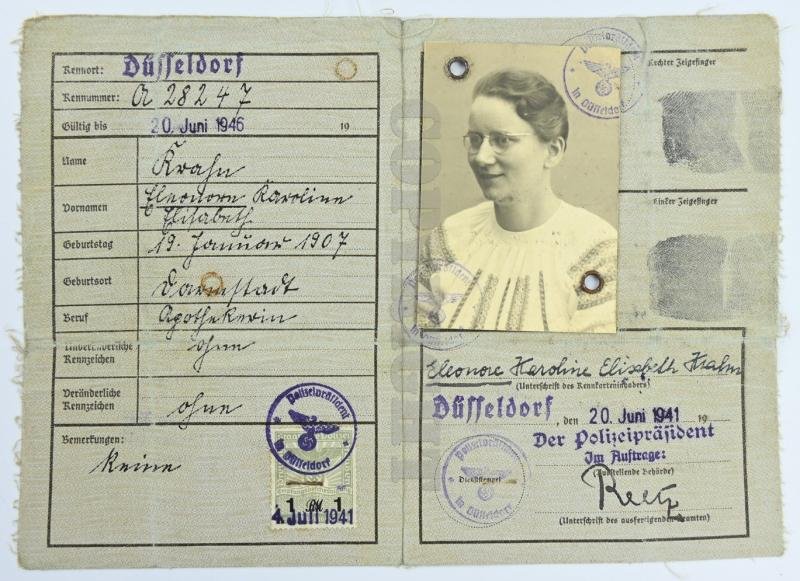 Kennort: Düsseldorf
Kennummer: A 28247
Gültig bis 20. Juni 1946 19
Name Krahn
Vornamen Eleonore Karoline
Elisabeth
Geburtstag 19. Januar 1907
Geburtsort Darmstadt
Beruf Apothekerin
Unveränderliche
Kennzeichen ohne
Veränderliche
Kennzeichen ohne
Bemerkungen:
Keine
Polizeipräsident
in Düsseldorf
1 RM 1
4. Juli 1941
Polizeipräsident
in Düsseldorf
Rechter Zeigefinger
Linker Zeigefinger
Eleonore Karoline Elisabeth Krahn
(Unterschrift des Kennkarteninhabers)
Düsseldorf, den 20. Juni 1941 19
Der Polizeipräsident
Im Auftrage:
(Ausstellende Behörde)
Polizeipräsident
Dienststempel
in Düsseldorf
(Unterschrift des ausfertigenden Beamten)